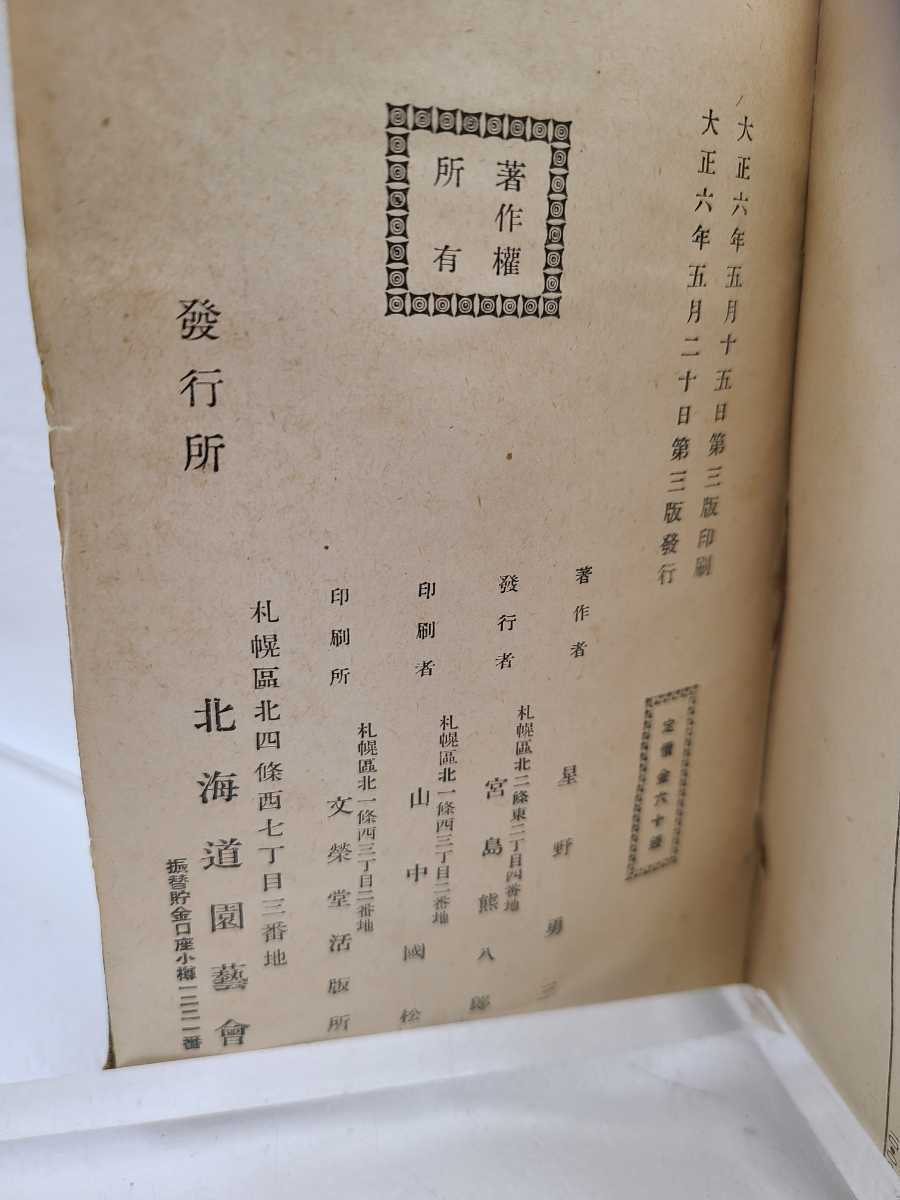 大正六年五月十五日第三版印刷
大正六年五月二十日第三版發行
定價金六十錢
著作權
所有
著作者
星野勇三
札幌區北二條東二丁目四番地
發行者
宮島熊八郎
札幌區北一條西三丁目二番地
印刷者
山中國松
札幌區北一條西三丁目二番地
印刷所
文榮堂活版所
札幌區北四條西七丁目三番地
發行所
北海道園藝會
振替貯金口座小樽一二二一番